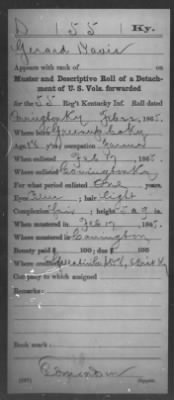 D | 55 | Ky.
Gerard Davis
Appears with rank of on
Muster and Descriptive Roll of a Detach-
ment of U. S. Vols. forwarded
for the 55 Reg't Kentucky Inf. Roll dated
Covington Ky 186
Where born Greenup Co Ky
Age y'rs; occupation Farmer
When enlisted Feb 17, 1865.
Where enlisted Covington Ky
For what period enlisted One years.
Eyes Blue; hair Light
Complexion Fair; height 5 ft. 9 in.
When mustered in Feb 17, 1865.
Where mustered in Covington
Bounty paid $ 100; due $ 100
Where credited
Company to which assigned
Remarks:
Book mark:
Copyist.